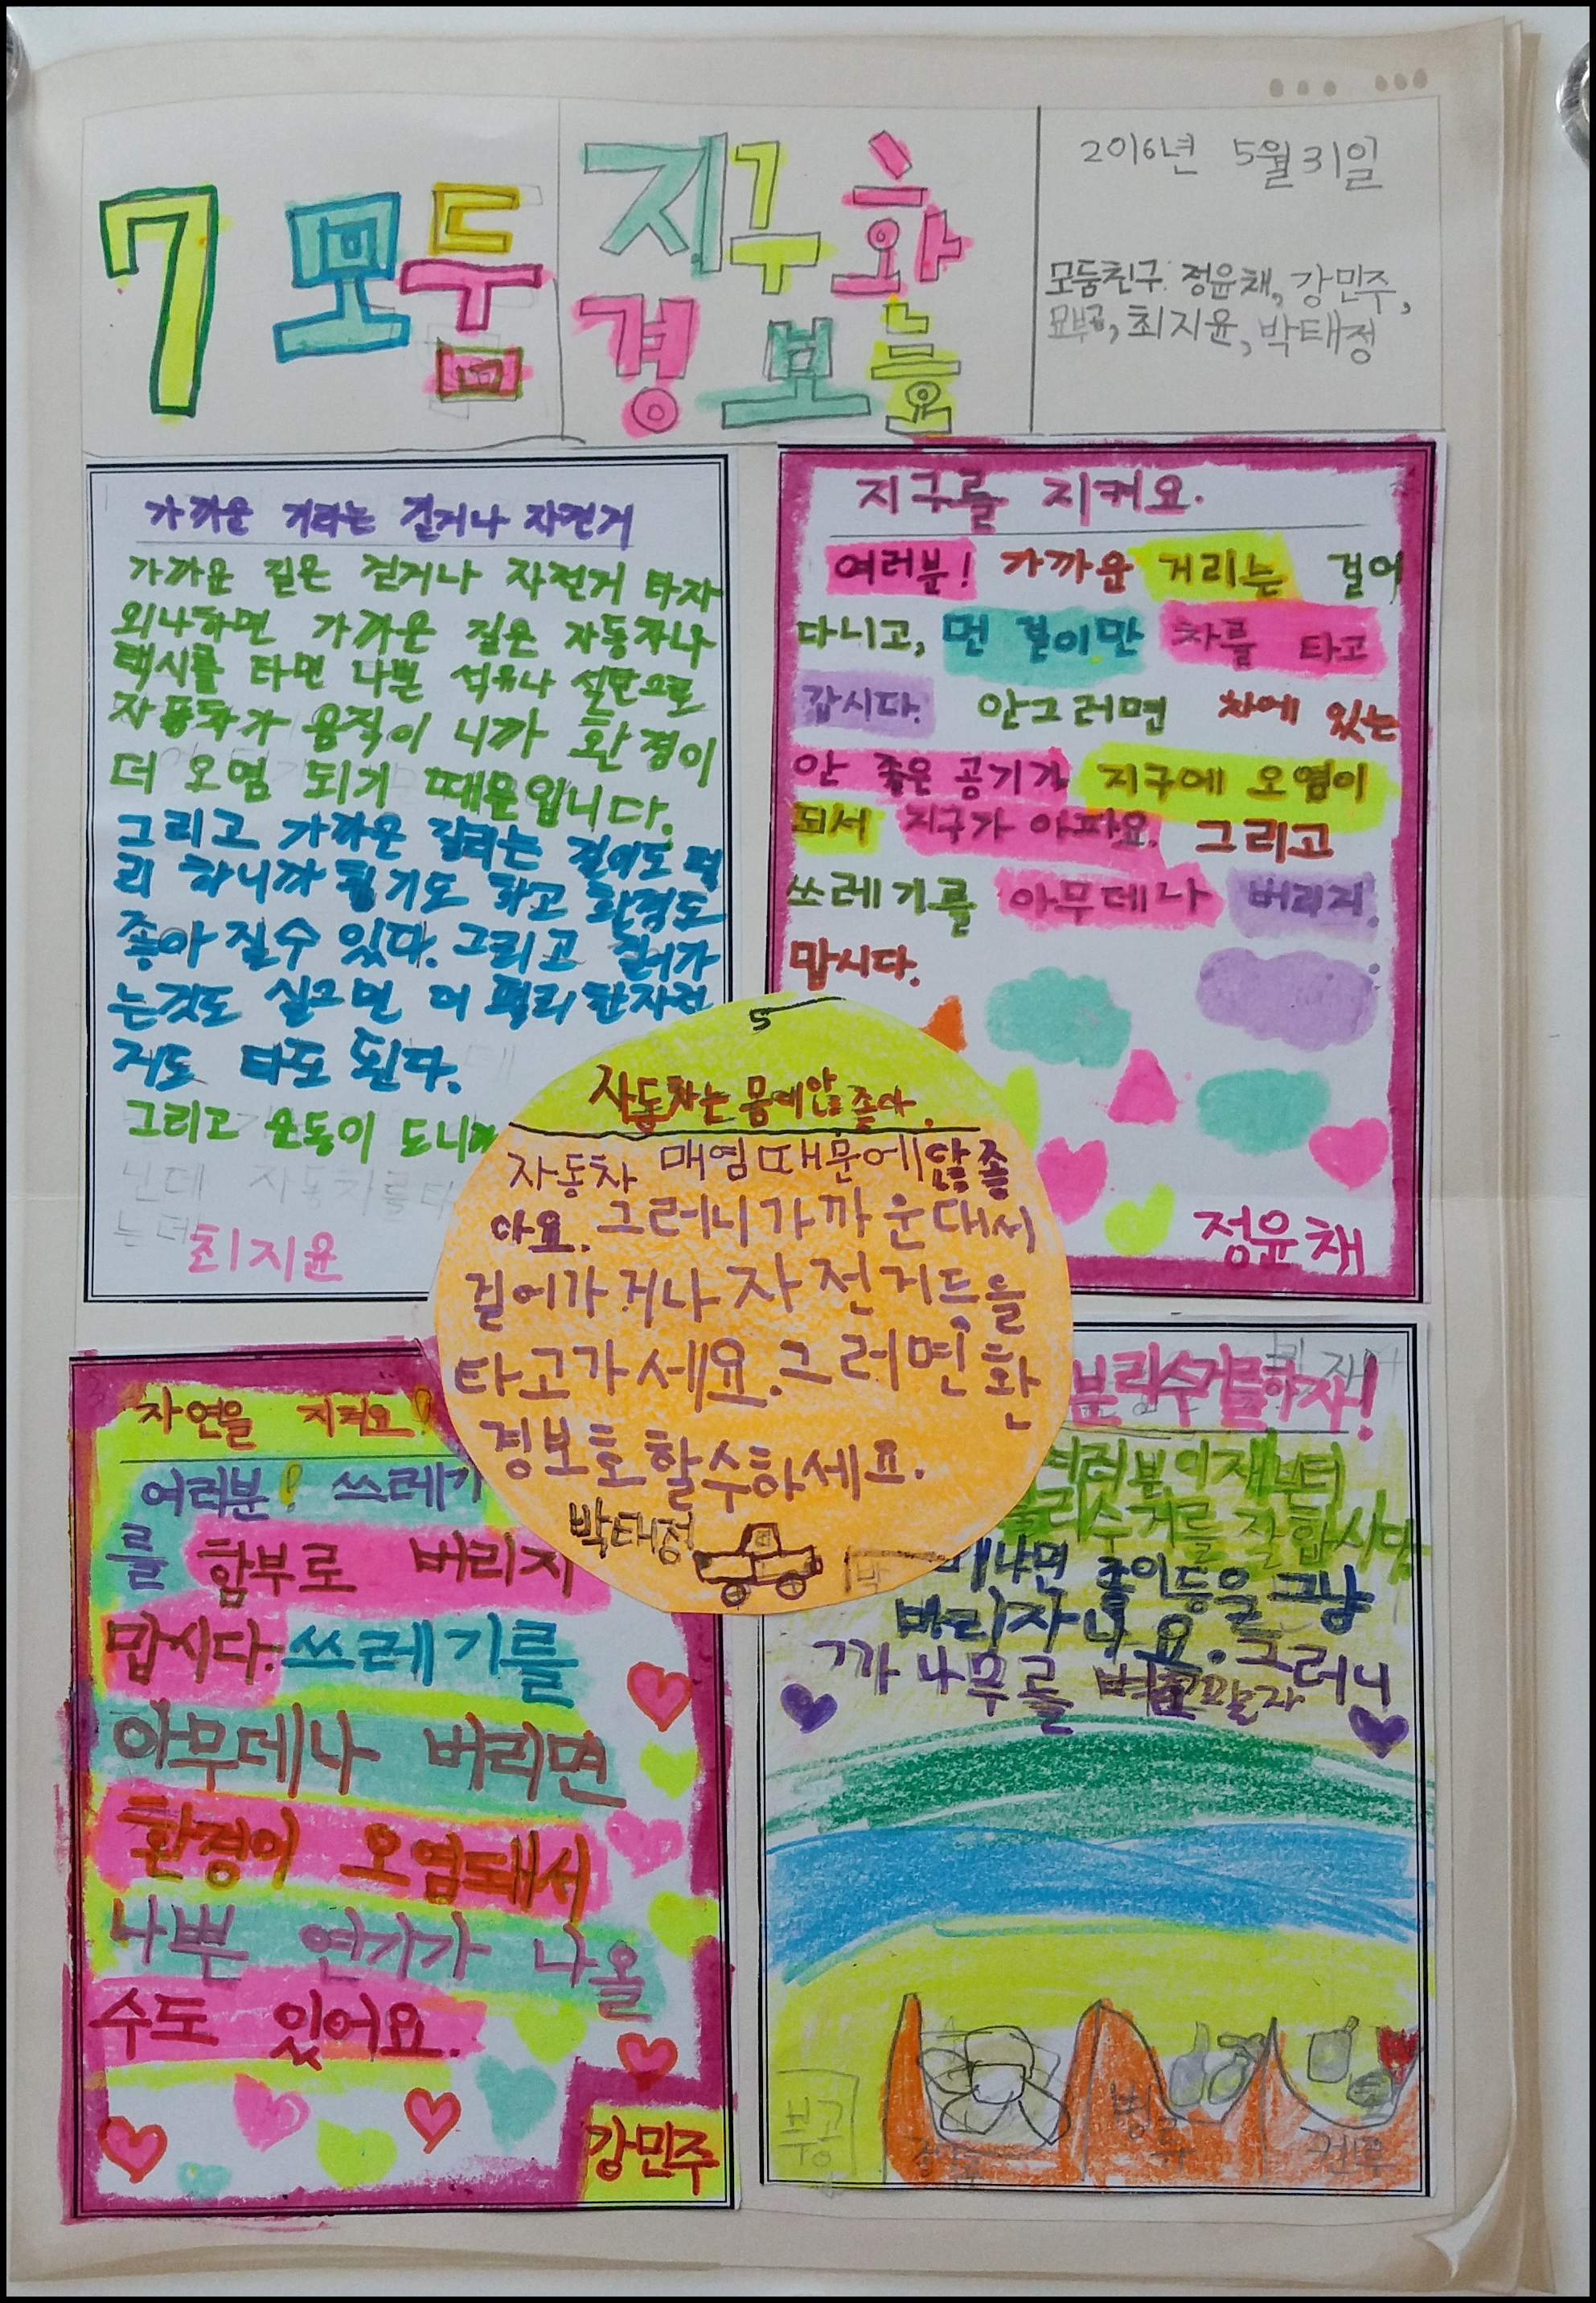 7 모둠
지구 환
경 보호
2016년 5월31일
모둠친구: 정윤채, 강민주,
최지윤, 박태정
가까운 거리는 걷거나 자전거
가까운 길은 걷거나 자전거 타자
외냐하면 가까운 길은 자동차나
택시를 타면 나쁜 석유나 석탄으로
자동차가 움직이 니까 환경이
더 오염 되기 때문입니다.
그리고 가까운 걸어도 펄
리 하니까 하고 환경도
좋아 질수 있다. 그리고 걸어가
는것도 싫으면 더 펄리 한자전
거도 타도 된다.
그리고 운동이 도니까
닌데 자동차를타
는데
최지윤
지구를 지켜요.
여러분! 가까운 거리는 걸어
다니고, 먼 길이만 차를 타고
갑시다. 안그러면 차에 있는
안 좋은 공기가 지구에 오염이
되서 지구가 아파요. 그리고
쓰레기를 아무데나 버리지.
맙시다.
정윤채
5
자동차는 몸에않좋다.
자동차 매염때문에않좋
아요. 그러니가까운대서
걸어가거나 자전거등을
타고가세요. 그러면 환
경보호할수하세요.
박태정
자연을 지켜요!
여러분! 쓰레기
를 함부로 버리지
맙시다. 쓰레기를
아무데나 버리면
환경이 오염돼서
나쁜 연기가 나올
수도 있어요.
강민주
분리수거를하자!
여러분이재부터
분리수거를 잘합시다
왜냐면 종이등을 그냥
버리자나요. 그러니
까 나무를
부공
병류
캔류